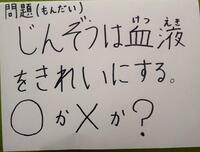 問題(もんだい)
じんぞうは血液
けつ えき
をきれいにする。
○か×か?